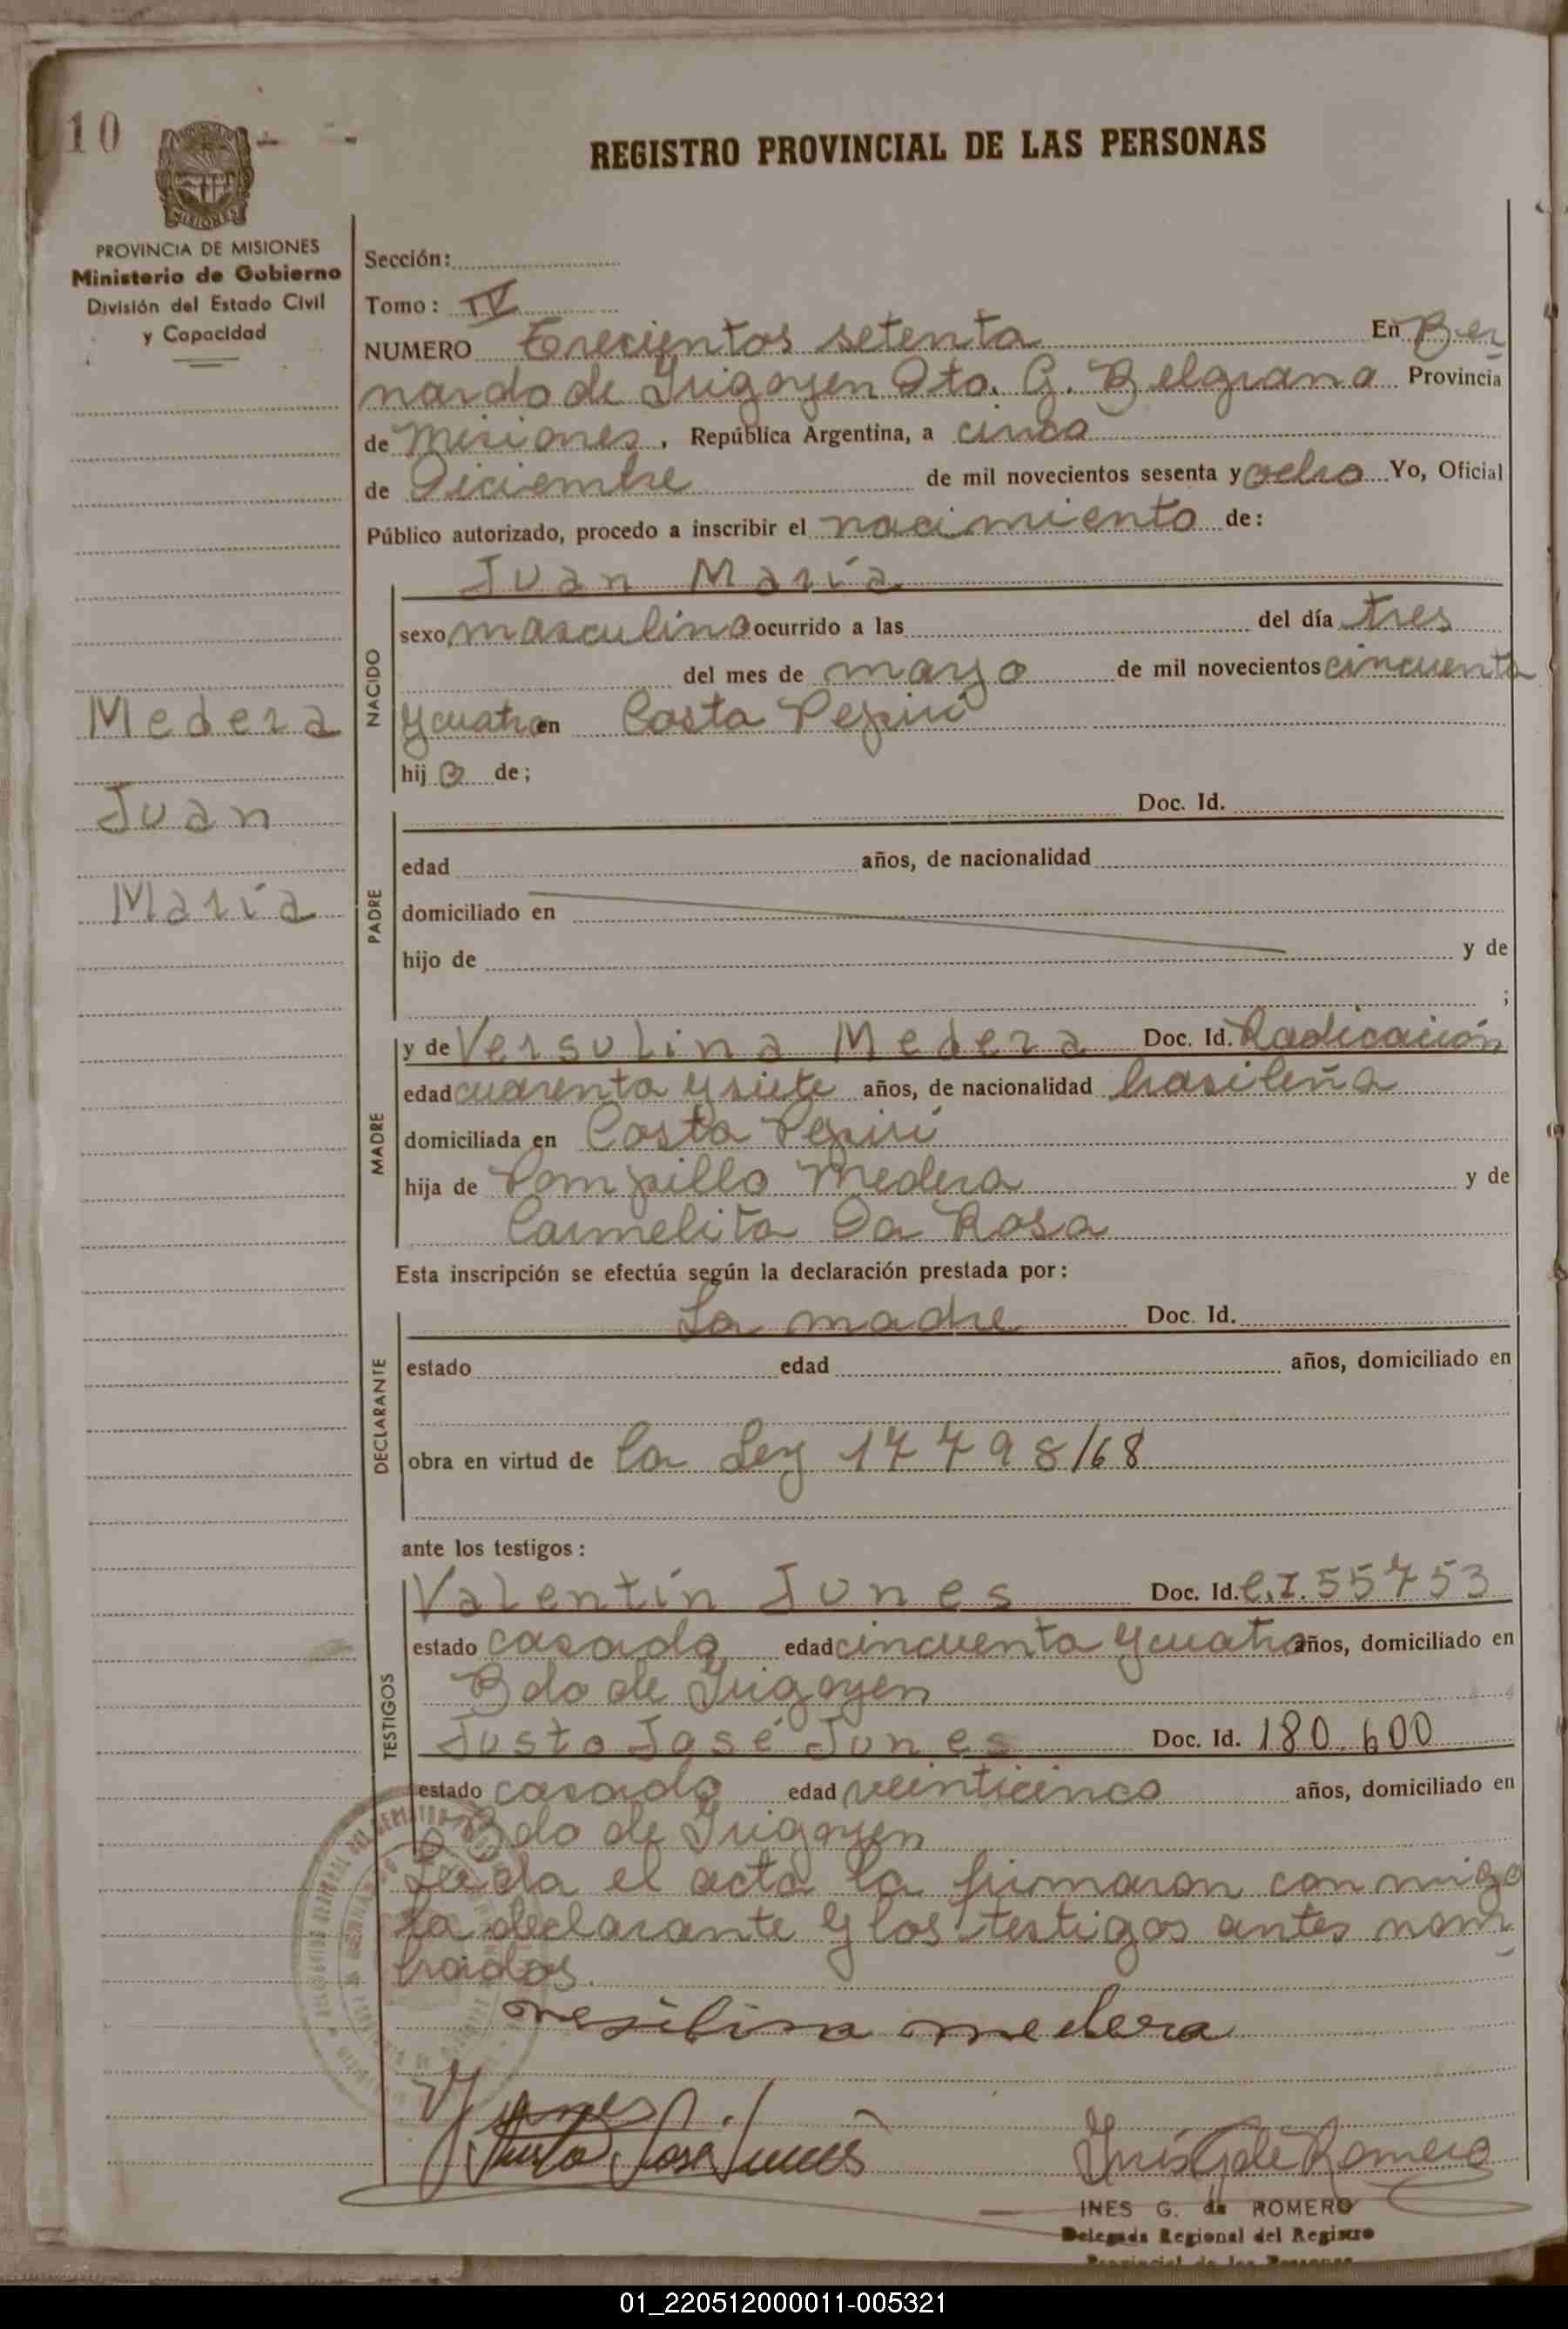 10
REGISTRO PROVINCIAL DE LAS PERSONAS
PROVINCIA DE MISIONES
Ministerio de Gobierno
División del Estado Civil
y Capacidad
Sección:
Tomo: IV
NUMERO Trecientos setenta En Ber
nardo de Irigoyen Dto. G. Belgrano Provincia
de Misiones, República Argentina, a cinco
de Diciembre de mil novecientos sesenta y ocho Yo, Oficial
Público autorizado, procedo a inscribir el nacimiento de:
Juan María
NACIDO
sexo masculino ocurrido a las del día tres
del mes de mayo de mil novecientos cincuenta
y cuatro en Costa Pepirí
hijo de;
Medera
Juan
María
PADRE
Doc. Id.
edad años, de nacionalidad
domiciliado en
hijo de y de
;
MADRE
y de Versulina Medera Doc. Id. Radicación
edad cuarenta y siete años, de nacionalidad brasileña
domiciliada en Costa Pepirí
hija de Pompillo Medera y de
Carmelita Da Rosa
Esta inscripción se efectúa según la declaración prestada por:
DECLARANTE
La madre Doc. Id.
estado edad años, domiciliado en
obra en virtud de la Ley 17798/68
ante los testigos:
TESTIGOS
Valentín Junes Doc. Id. C.I. 55753
estado casado edad cincuenta y cuatro años, domiciliado en
Bdo de Irigoyen
Justo José Junes Doc. Id. 180.600
estado casado edad veinticinco años, domiciliado en
Bdo de Irigoyen
Leída el acta la firmaron con migo
la declarante y los testigos antes nom
brados.
medera
Justo José Junes
Inés G de Romero
INES G. de ROMERO
Delegada Regional del Registro
Provincial de las Personas
01_220512000011-005321